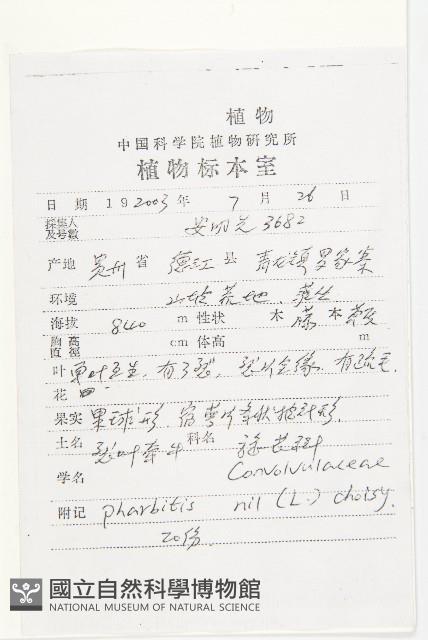 植物
中国科学院植物研究所
植物标本室
日 期 19 2003 年 7 月 26 日
採集人及号数 安明先 3682
产地 贵州 省 德江 县 青龙镇 罗家寨
环境 山坡荒地 藤生
海拔 840 m 性状 木 藤 本
胸高直径 cm 体高 m
叶 单叶互生, 有3裂, 裂片全缘, 有疏毛.
花
果实 果球形, 宿萼片条状披针形.
土名 裂叶牵牛 科名 旋花科
Convolvulaceae
学名
附记 pharbitis nil (L.) choisy.
20份.
國立自然科學博物館
NATIONAL MUSEUM OF NATURAL SCIENCE